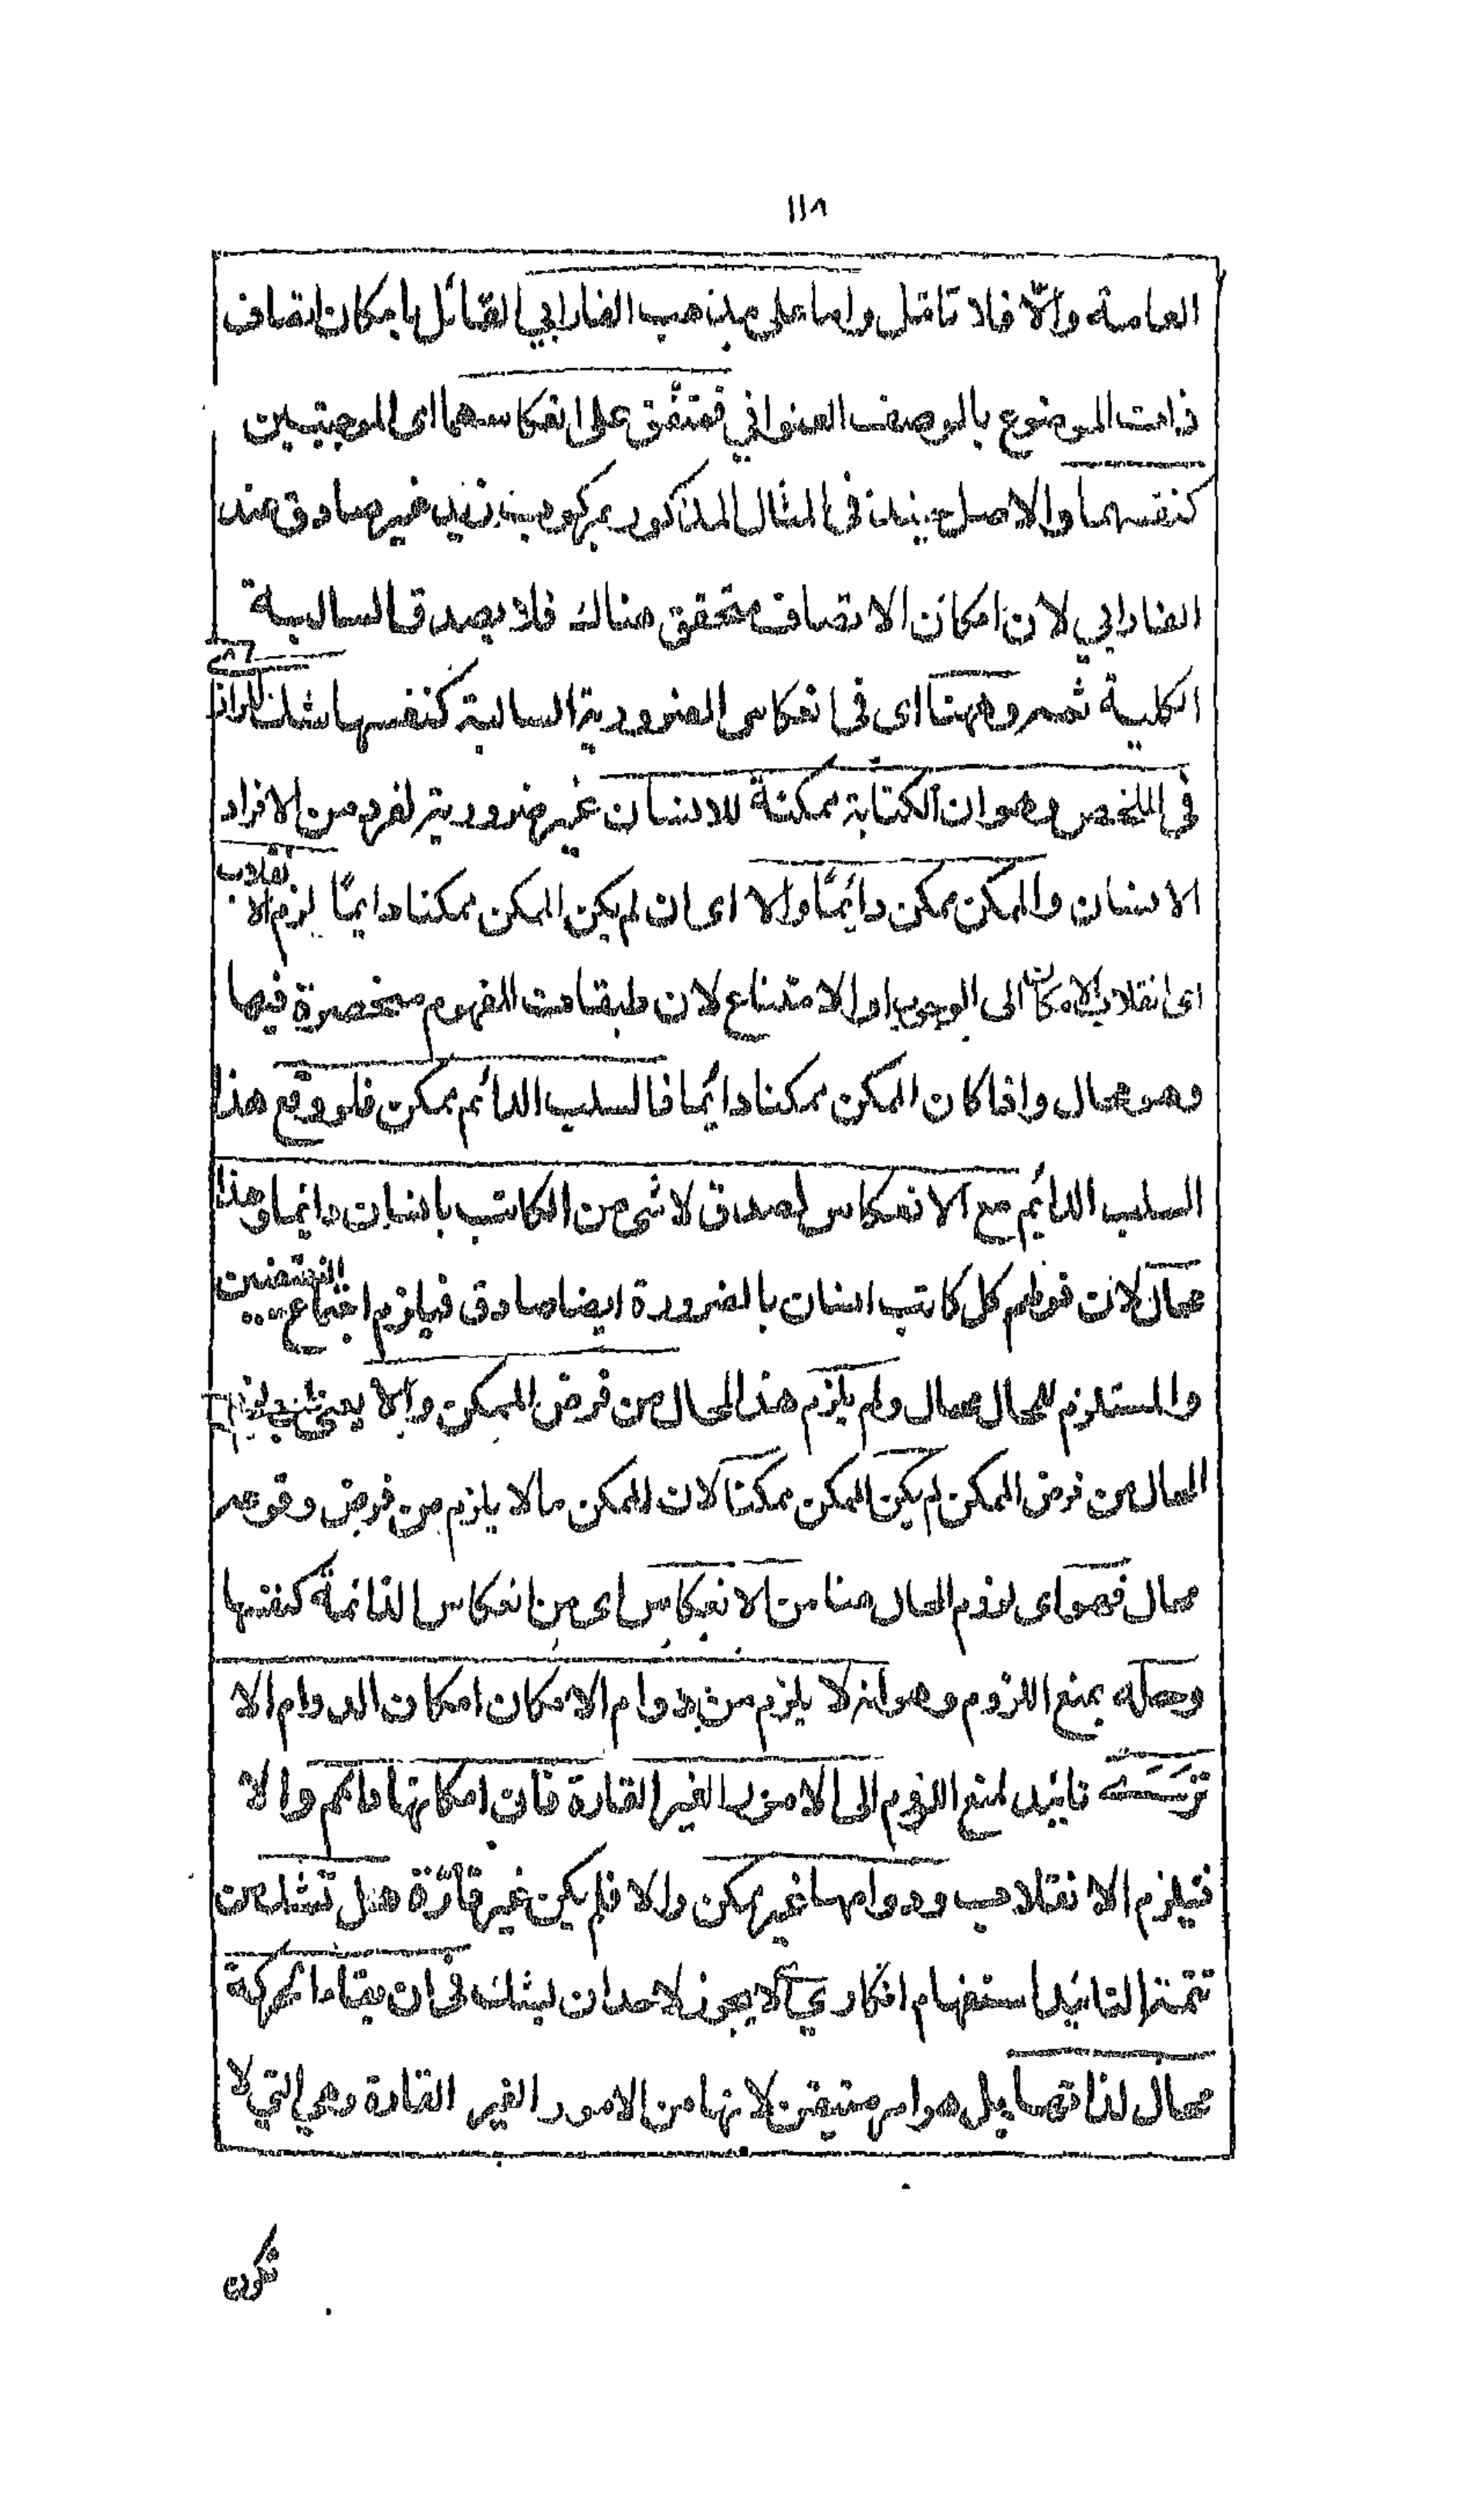 ١١٨
العامة والّا فلا تأمّل واما على مذهب الفارابي القائل بامكان اتصاف
ذات الموضوع بالوصف العنواني فمتفق على انعكاسهما اى الموجبتين
كنفسهما والاصل حينئذ فى المثال المذكور بمركوب زيد غير صادق عند
الفارابي لان امكان الاتصاف متحقق هناك فلا يصدق السالبة
الكلية ثم وههنا اى فى انعكاس الضرورية السالبة كنفسها شك للرازى
فى الملخص وهو ان الكتابة ممكنة للانسان غير ضرورية لفرد من الافراد
الانسان والممكن ممكن دائمًا والا اى ان لم يكن الممكن ممكنا دايمًا لزم الانقلاب
اى انقلاب الامكان الى الوجوب او الامتناع لان طبقات المفهوم منحصرة فيها
وهو محال واذا كان الممكن ممكنا دائما فالسلب الدائم ممكن فلو وقع هذا
السلب الدائم مع الانعكاس لصدق لا شئ من الكاتب بانسان دائما وهذا
محال لان قولهم كل كاتب انسان بالضرورة ايضا صادق فيلزم اجتماع النقيضين
والمستلزم للمحال محال ولم يلزم هذا المحال من فرض الممكن والا يعنى
المحال من فرض الممكن لم يكن الممكن ممكنا لان الممكن ما لا يلزم من فرض وقوعه
محال فهو اى لزوم المحال هنا من الانعكاس اى من انعكاس الدائمة كنفسها
وحله بمنع اللزوم وهو انه لا يلزم من دوام الامكان امكان الدوام الا
ترى تائيد لمنع اللزوم الى الامور الغير القارة فان امكانها دائم والا
فيلزم الانقلاب ودوامها غير ممكن والا فلم يكن غير قارّة هل تشك من
تتمة التائيد استفهام انكاري اى لا يجوز لاحد ان يشك فى ان بقاء الحركة
محال لذاتها بل هو امر متيقن لانها من الامور الغير القارة وهي التي لا
تكون